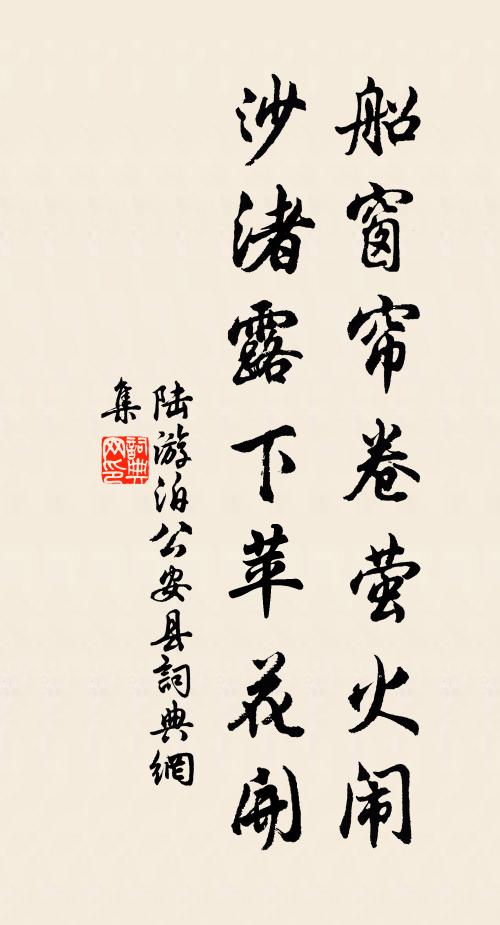 船窗帘卷萤火闹
沙渚露下苹花開
陆游泊公安县詞典網
集
詞典
网印